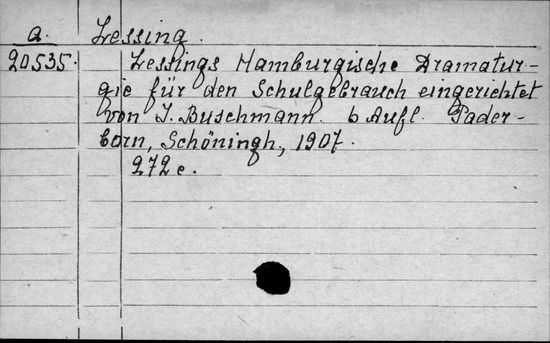 a. Lessing.
20535. Lessings Hamburgische Dramatur-
gie für den Schulgebrauch eingerichtet
von J. Buschmann. 6 Aufl. Pader-
born, Schöningh, 1907.
272 c.